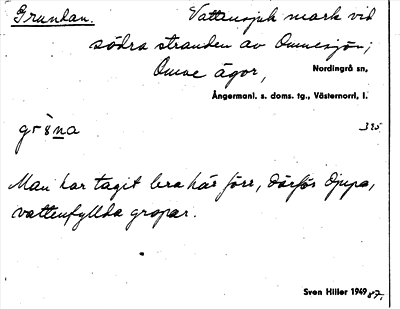 Grundan. Vattensjuk mark vid
södra stranden av Omnesjön;
Omne ägor, Nordingrå sn,
Ångermanl. s. doms. tg., Västernorrl. l.
395
Man har tagit lera här förr, därför djupa,
vattenfyllda gropar.
Sven Hiller 1949